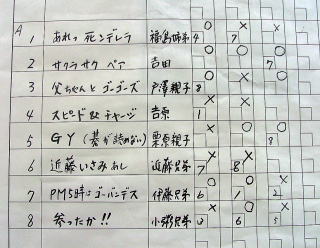 A
1 あれっ死ンデレラ 福島姉弟 ○4 ×7 ×
2 サクラサク ペア 吉田 ○ ○ ×7
3 父ちゃんとゴーゴーズ 戸澤親子 ○8 × ○
4 スピード&チャージ 吉原 ×1 × ○
5 GY(碁が読めない) 栗原親子 ○ ○ ○8
6 近藤いさみあし 近藤兄弟 ×7 ×8 ×
7 PM5時はゴーバンデス 伊藤兄弟 ○6 ○1 ×2
8 参ったか!! 小粥兄弟 ×3 ×6 ×5